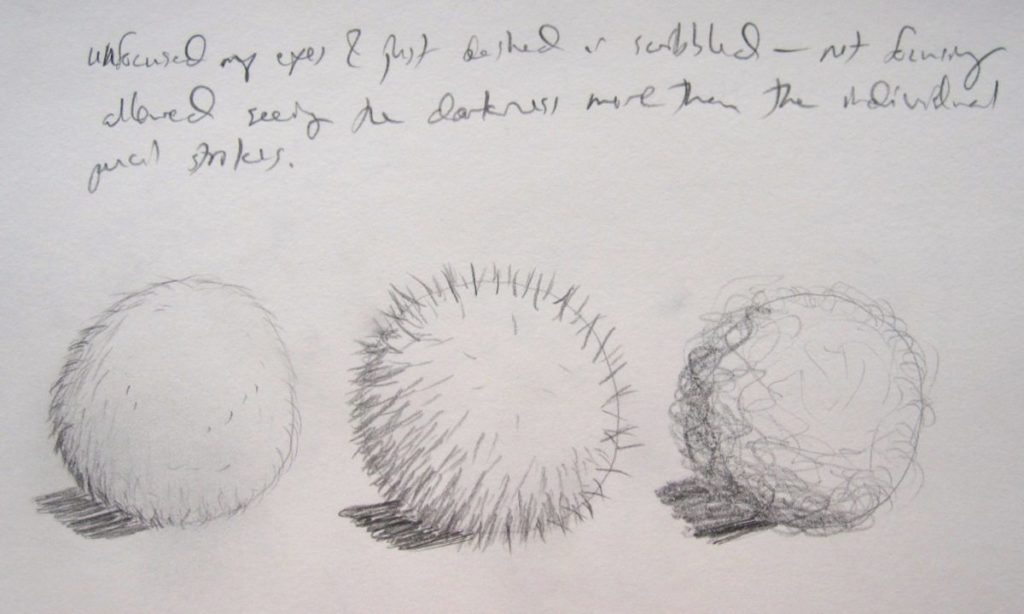 unfocused my eyes & just dashed or scribbled – not focusing
allowed seeing the darkness more than the individual
pencil strokes.